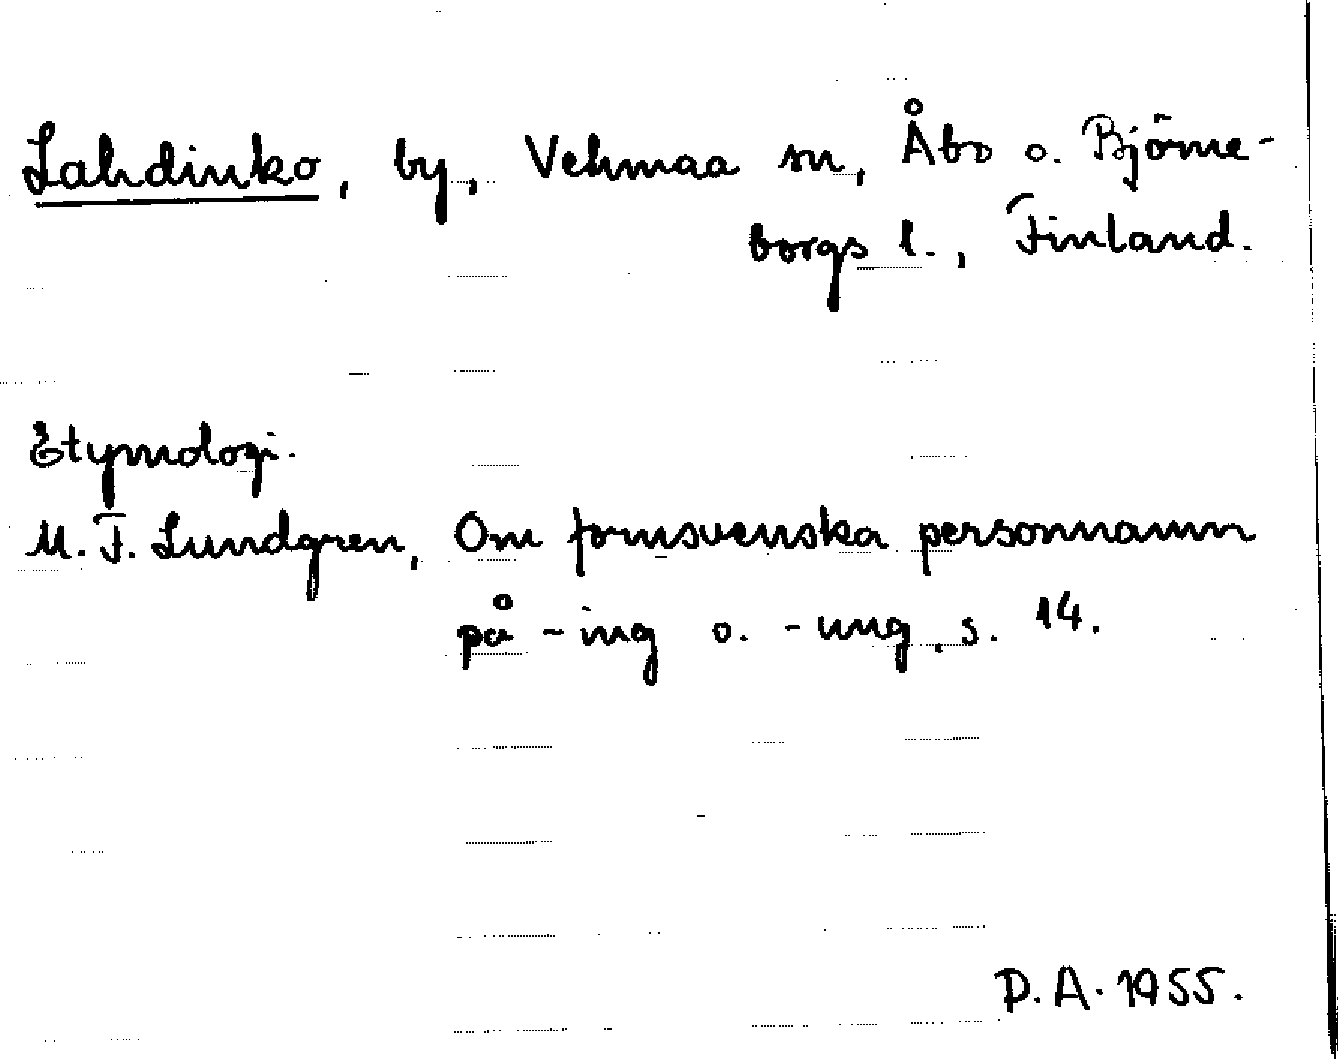 Lahdinko, by, Vehmaa sn, Åbo o. Björne-
borgs l., Finland.
Etymologi.
M. F. Lundgren, Om fornsvenska personnamn
på -ing o. -ung, s. 14.
D. A. 1955.